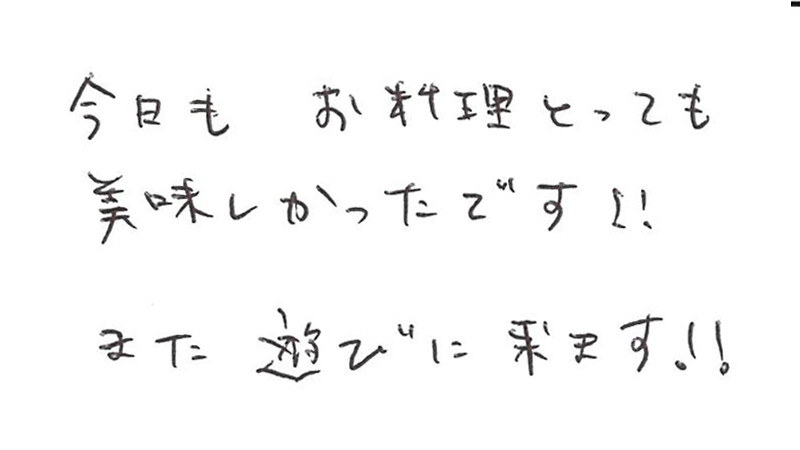 今日も お料理とっても
美味しかったです!!
また 遊びに 来ます!!